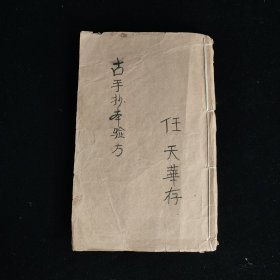 任天華存
古手抄本验方